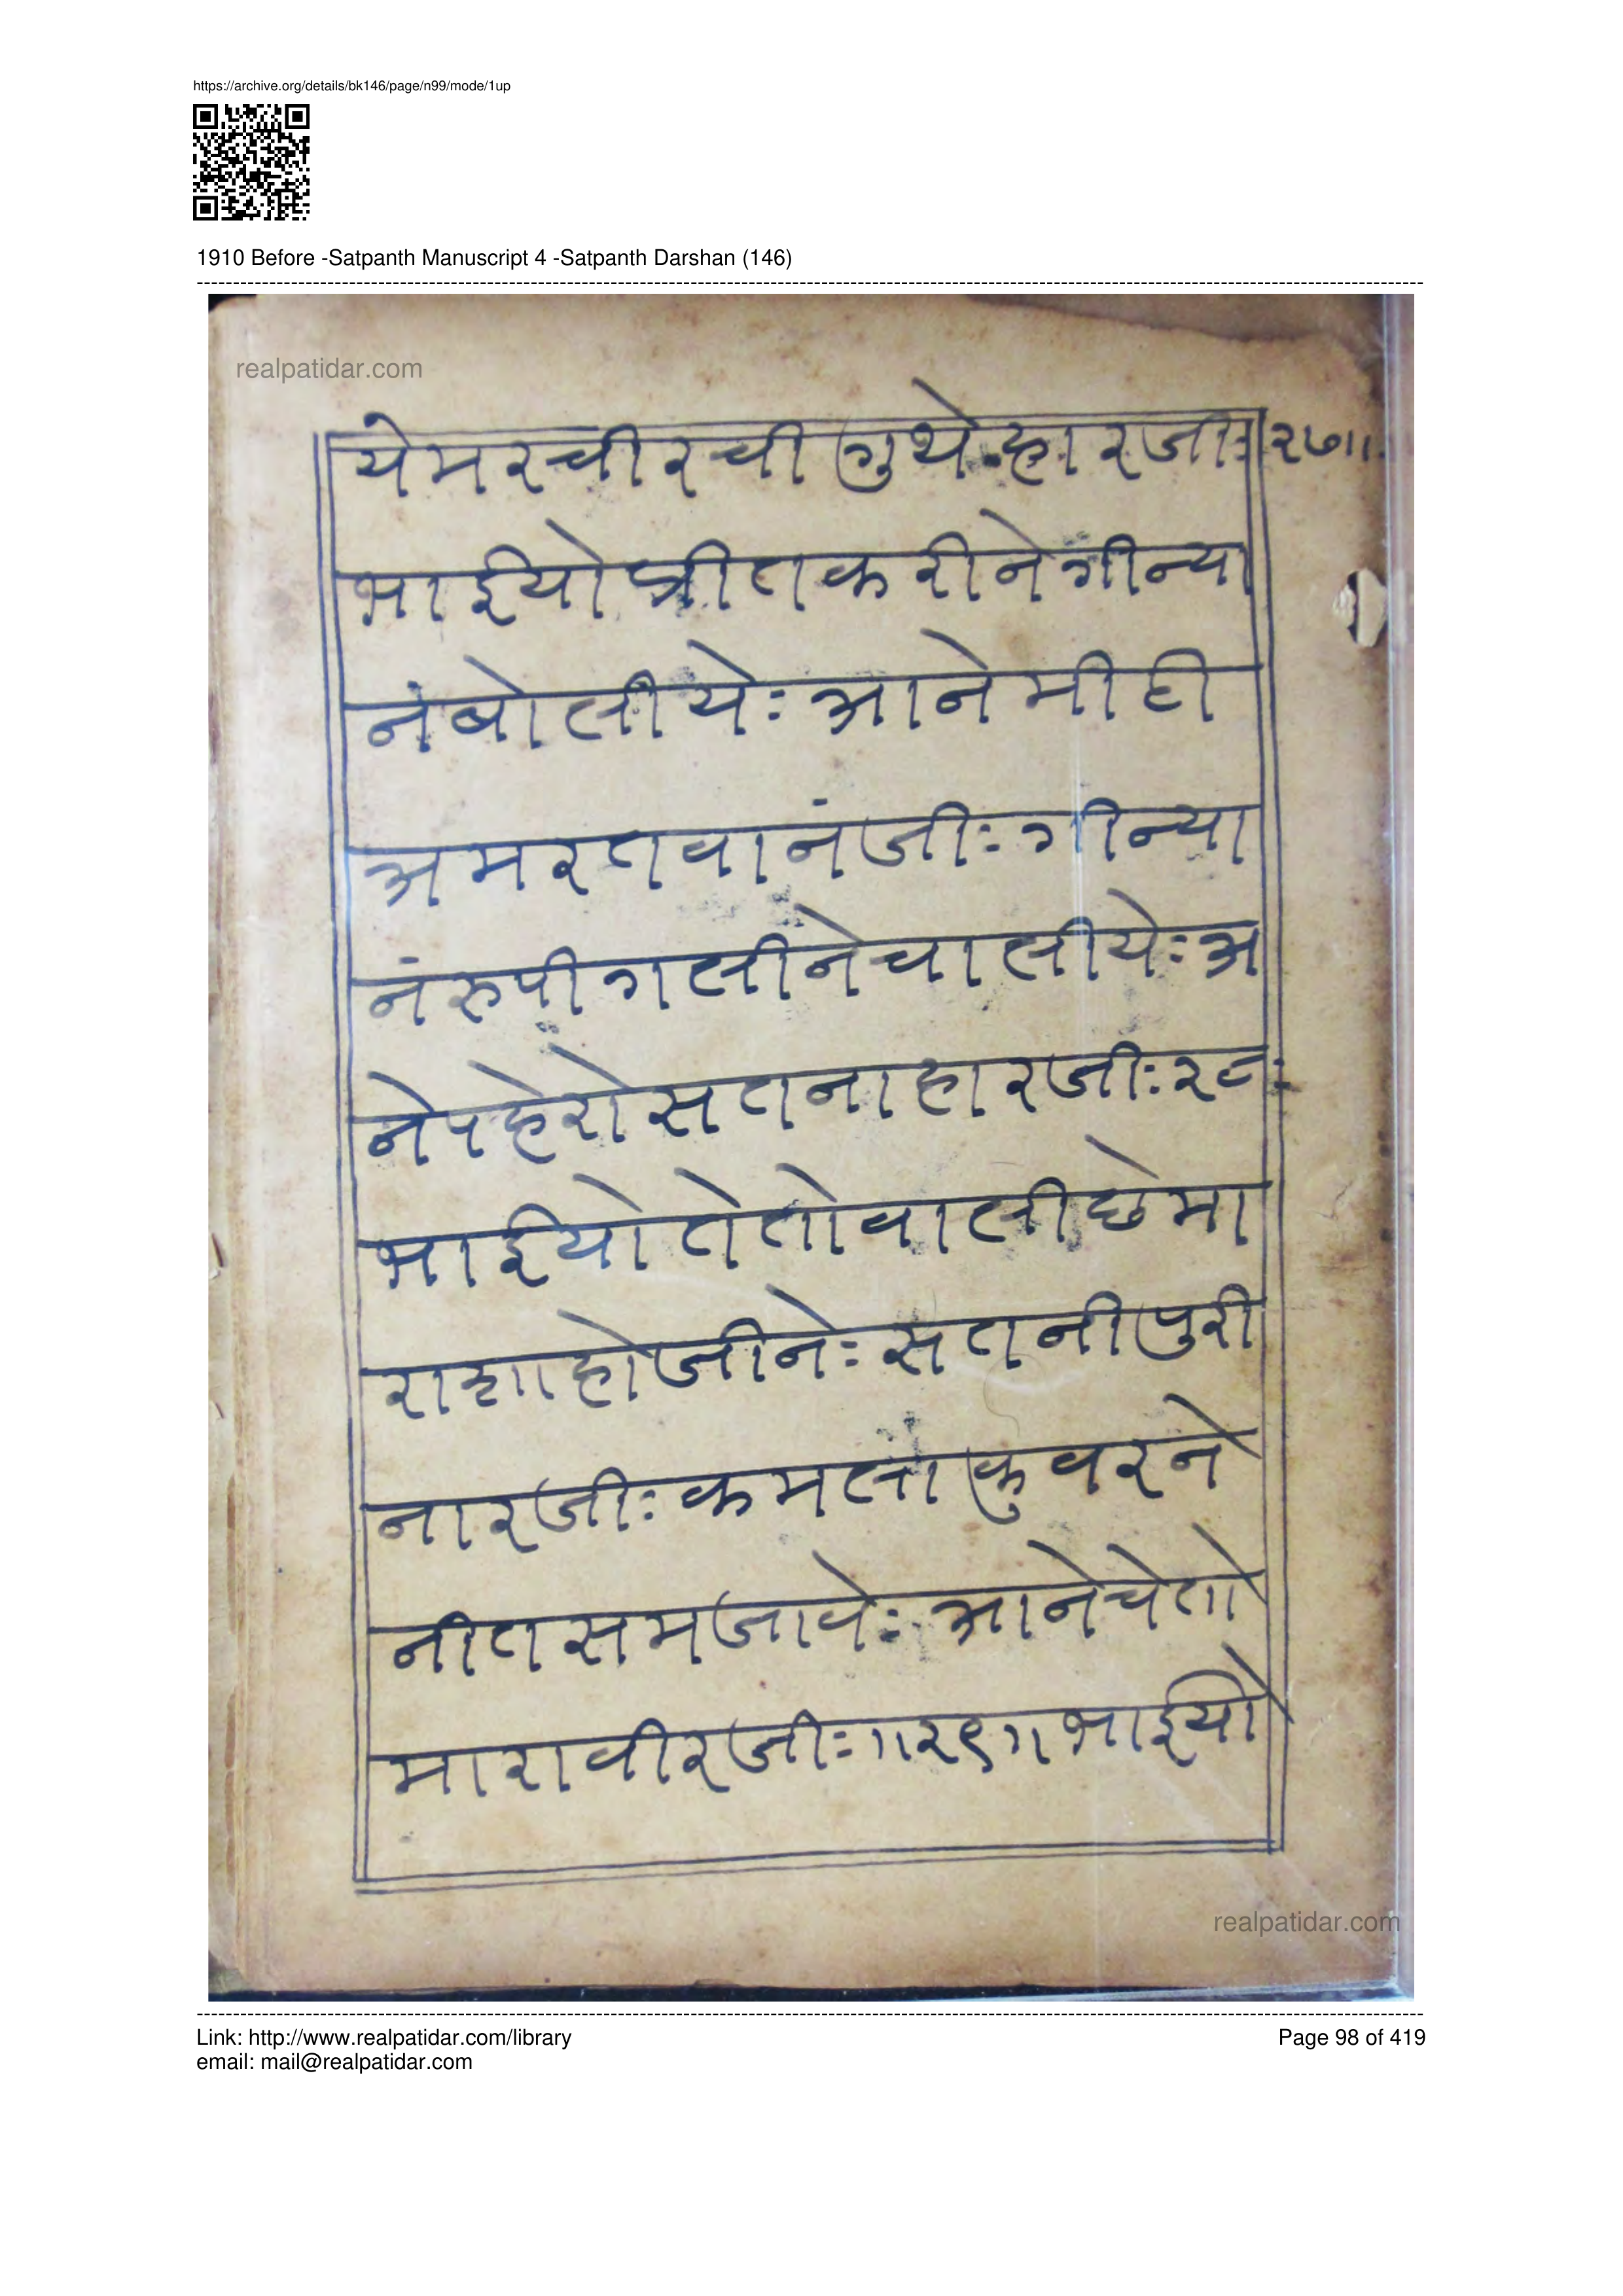 https://archive.org/details/bk146/page/n99/mode/1up
1910 Before -Satpanth Manuscript 4 -Satpanth Darshan (146)
realpatidar.com
येमरचीरची गुथे हारजीः॥२७॥
भाईयो प्रीतकरीने गीन्या
नंबोलीयेः आने मीठी
अमरतवानंजीः गीन्या
नंरुपी गलीने चालीयेः अ
नेपहेरो सतनाहारजीः२८ः
भाईयो तेतोवालीछेमा
राशाहोजीनेः सतनीपुरी
नारजीः कमला कुवरने
नीतसमजावेः आनेचेतो
मारावीरजीः॥२९॥भाईयो
realpatidar.com
Link: http://www.realpatidar.com/library
Page 98 of 419
email: mail@realpatidar.com